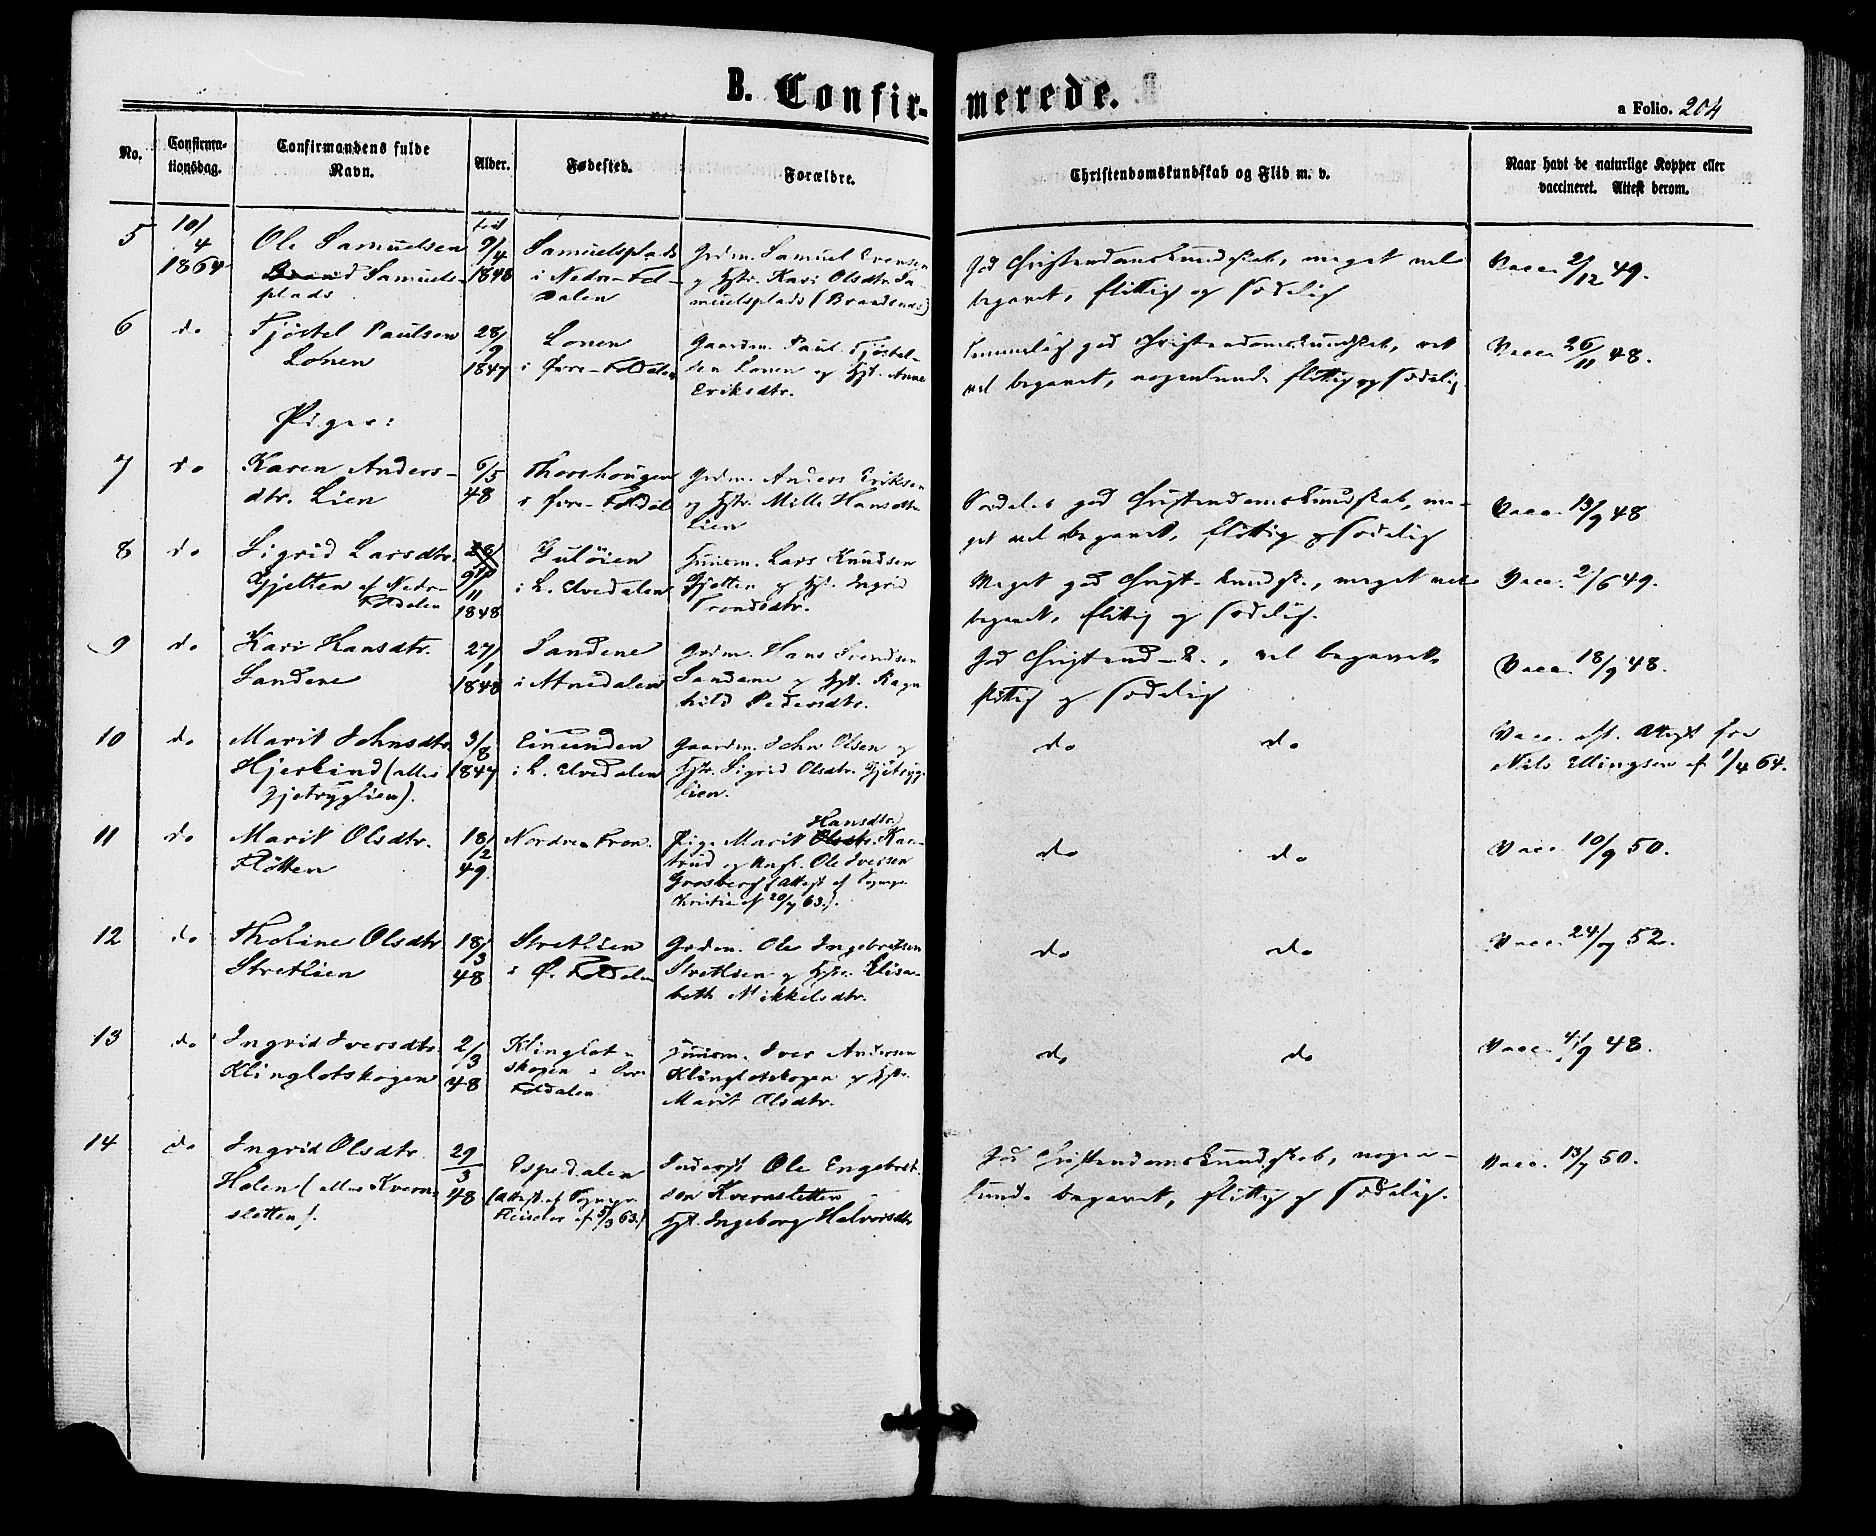 B. Confir- merede.
a Folio. 204
No.
Confirma-
tionsdag.
Confirmandens fulde
Navn.
Alder.
Fødested.
Forældre.
Christendomskundskab og Flid m. v.
Naar havt de naturlige Kopper eller
vaccineret. Attest derom.
5
10/
4
1864
Ole Samuelsen
Samuels-
plads
9/4
1848
Samuelsplads
i Nedre-Fol-
dalen
Grdm. Samuel Evensen
og Hstr. Kari Olsdtr. Sa-
muelsplads (Brandsnes)
God Christendomskundskab, meget vel
begavet, flittig og sædelig
Vacc. 2/12 49.
6
do
Tjøstel Paulsen
Lonen
28/
9
1847
Lonen
i Øvre-Foldalen
Gaardm. Paul Tjøstel-
sen Lonen og Hst. Anne
Eriksdtr.
Temmelig god Christendomskundskab, ret
vel begavet, nogenlunde flittig og sædelig
Vacc. 26/11 48.
Piger:
7
do
Karen Anders-
dtr. Lien
6/5
48
Thorshougen
i Øvre-Foldal
Grdm. Anders Eriksen
og Hstr. Mille Hansdtr.
Lien
Særdeles god Christendomskundskab, me-
get vel begavet, flittig og sædelig
Vacc. 13/9 48
8
do
Sigrid Larsdtr.
Gjelten af Nedre-
Foldalen
11
1848
Guløien
i L. Elvedalen
Huusm. Lars Knudsen
Gjelten og Hst. Ingrid
Trondsdtr.
Meget god Christ. kundsk., meget vel
begavet, flittig og sædelig.
Vacc. 2/6 49.
9
do
Kari Hansdtr.
Sandene
27/
1
1848
Sandene
i Atnedalen
Grdm. Hans Svendsen
Sandene og Hst. Ragn
hild Pedersdtr.
God Christend-k., vel begavet,
flittig og sædelig
Vacc. 18/9 48.
10
do
Marit Johnsdtr.
Hjerkind (eller
Gjetryglien).
3/8
1847
Einunden
i L. Elvedalen
Gaardm. John Olsen og
Hstr. Sigrid Olsdtr. Gjetryg-
lien.
do do
Vacc. eft. Attest fra
Nils Ellingsen af 1/4 64.
11
do
Marit Olsdtr.
Fløtten
18/
2
49
Nordre Fron.
Hansdtr.
Pige Marit Olsdtr. Kam-
trud og Ungk. Ole Iversen
Grosberg (Attest af Sognepr.
Christie af 20/7 63.).
do do
Vacc. 10/9 50.
12
do
Tholine Olsdtr.
Stretlien
18/
3
48
Stretlien
i Ø. Foldalen
Grdm. Ole Ingebretsen
Stretlien og Hstr. Elisa-
beth Mikkelsdtr.
do do
Vacc. 24/9 52.
13
do
Ingrid Iversdtr.
Klinglotskogen
2/
3
48
Klinglot-
skogen i
Foldalen
Huusm. Iver Andersen
Klinglotskogen og Hstr.
Marit Olsdtr.
do do
Vacc. 4/9 48.
14
do
Ingrid Olsdtr.
Holen (eller Kverns-
sletten).
29
3
48
Espedalen
(Attest af Sognepr.
Fleischer af 5/3 63.)
Inderst Ole Engebret-
sen Kvernsletten
Hst. Ingeborg Halvorsdtr
God Christendomskundskab, nogen-
lunde begavet, flittig og sædelig.
Vacc. 13/7 50.